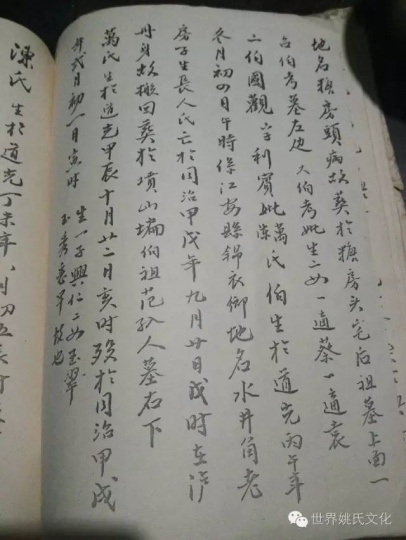 地名糖房頭病故葵於糖房头宅后祖墓上面一
台伯考墓左边 大伯考妣生二女一適蔡一適袁
二伯國觀 字利賓妣萬氏 伯生於道光丙午年
冬月初四日午時係江安縣錦衣鄉地名水井筒老
房子生長人氏亡於同治甲戌年九月廿日戌時在泸
州身故搬回葵於墳山塆伯祖范孺人墓右下
萬氏生於道光甲辰十月廿二日亥時歿於同治甲戌
年弍月初一日寅時 生一子興仁二女玉翠
玉秀
陳氏 生於道光丁未年 月初五辰时
世界姚氏文化